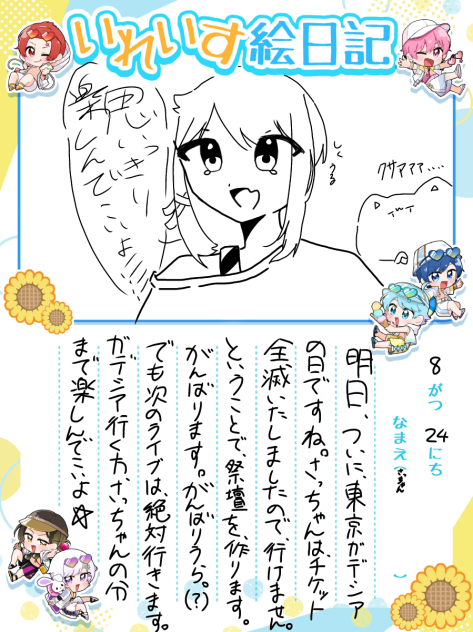 いれいす絵日記
思いっきり
楽しんでこいよ!!!
クサアアア.....
8がつ24にち
なまえ
明日、ついに、東京ガデシア
の日ですね。さっちゃんは、チケット
全滅いたしましたので、行けません。
ということで、祭壇を、作ります。
がんばります。がんばりうら。(?)
でも次のライブは、絶対行きます。
ガデシア行く方さっちゃんの分
まで楽しんでこいよ☆